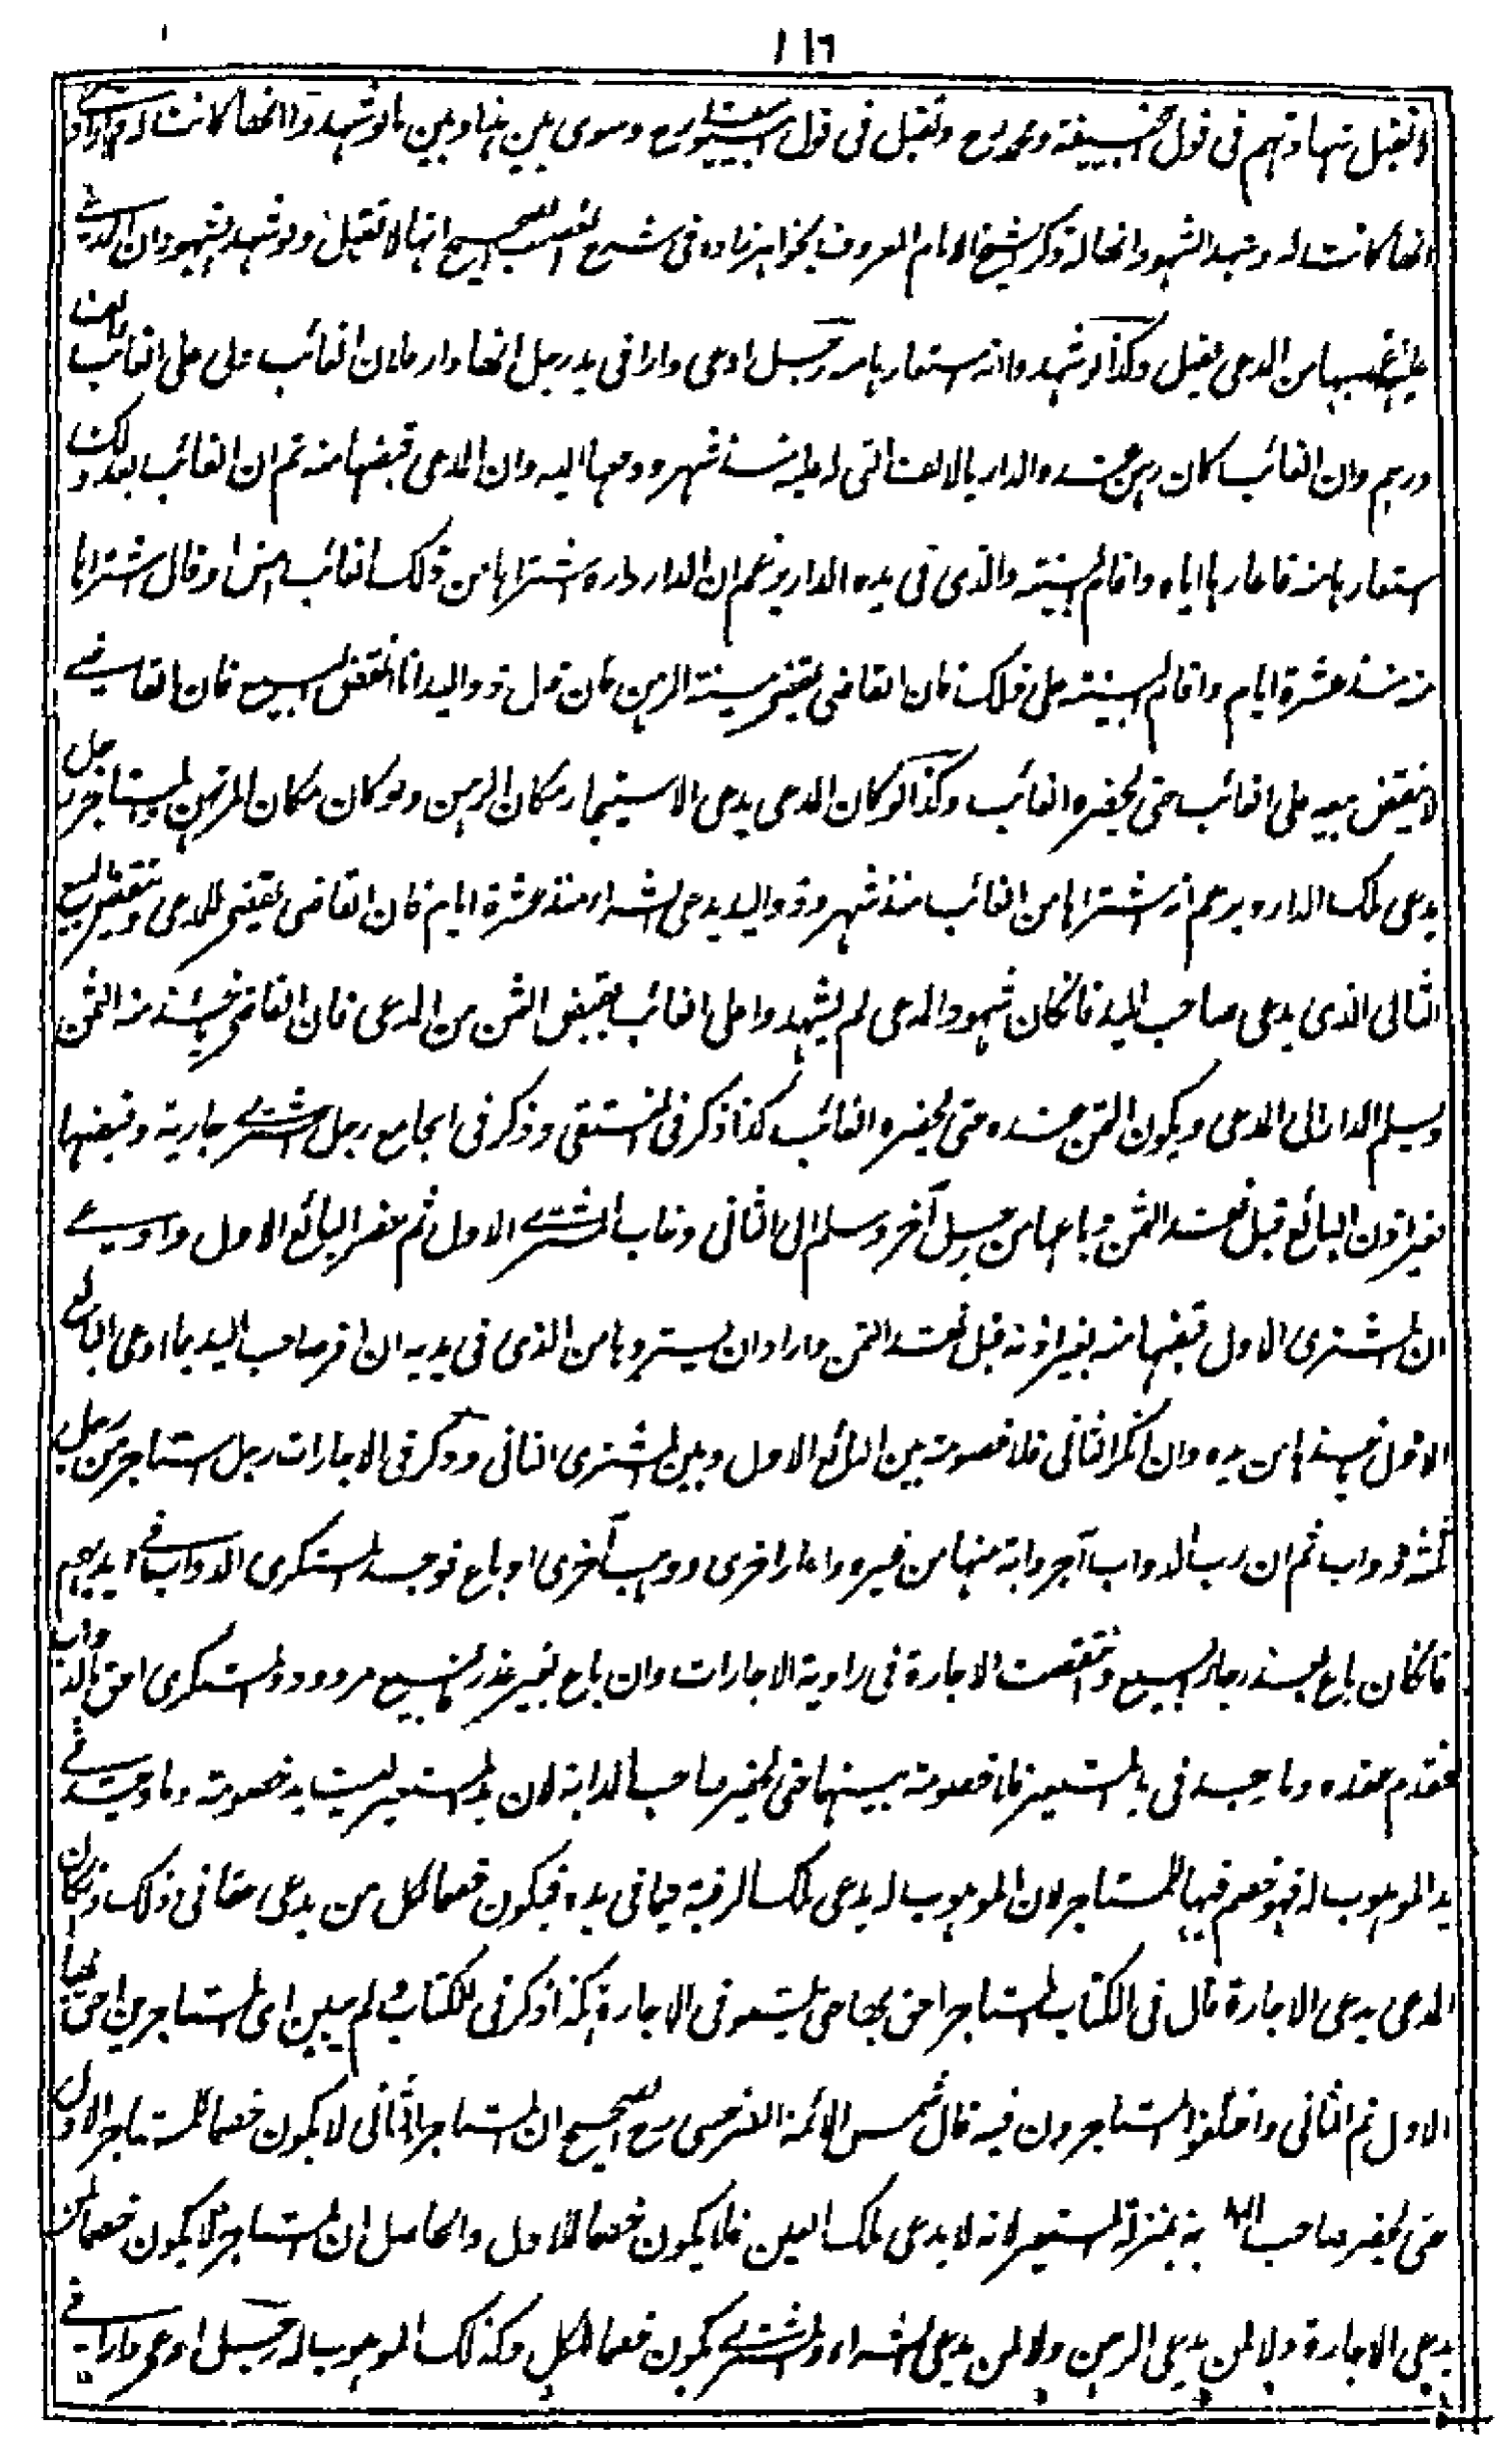 ١١٦
لا تقبل شهادتهم فى قول ابيحنيفة ومحمد رح وتقبل فى قول ابييوسف رح وسوى بين هذا وبين ما لو شهدوا انها كانت له
انها كانت له وشهد الشهود انها له ذكر الشيخ الامام المعروف بخواهرزاده فى شرح الصحيح انها لا تقبل ولو شهد الشهود ان المدعى
عليه غصبها من المدعى يقبل وكذا لو شهدوا انه استعارها منه رجل ادعى دارا فى يد رجل انها دار فلان الغائب وله على الغائب الف
درهم وان الغائب كان رهن عنده الدار بالالف التى له عليه منذ شهر ودفعها اليه وان المدعى قبضها منه ثم ان الغائب بعد ذلك
استعارها منه فاعارها اياه واقام البينة والذى فى يده الدار يزعم ان الدار داره اشتراها من ذلك الغائب امس او قال اشتراها
منه منذ عشرة ايام واقام البينة على ذلك فان القاضى يقضى ببينة الرهن فان قال ذو اليد انا انقض البيع فان القاضى
لا ينقض بيعه على الغائب حتى يحضره الغائب وكذا لو كان المدعى يدعى الاستيجار مكان الرهن ولو كان مكان المرتهن والمستاجر رجل
يدعى ملك الدار ويزعم انه اشتراها من الغائب منذ شهر وذو اليد يدعى الشراء منذ عشرة ايام فان القاضى يقضى للمدعى وينتقض البيع
الثانى الذى يدعى صاحب اليد فان كان شهود المدعى لم يشهدوا على الغائب بقبض الثمن من المدعى فان القاضى ياخذ منه الثمن
ويسلم الدار الى المدعى ويكون الثمن عنده حتى يحضره الغائب كذا ذكر فى المنتقى وذكر فى الجامع رجل اشترى جارية وقبضها
بغير اذن البائع قبل نقد الثمن وباعها من رجل آخر وسلم الى الثانى وغاب المشترى الاول ثم حضر البائع الاول وادعى
ان المشترى الاول قبضها منه بغير اذنه قبل نقد الثمن واراد ان يستردها من الذى فى يديه ان اقر صاحب اليد بما ادعى البائع
الاول ياخذها من يده وان انكر الثانى فلا خصومة بين البائع الاول وبين المشترى الثانى وذكر فى الاجارات رجل استاجر من رجل
ثلثة دواب ثم ان رب الدواب آجر دابة منها من غيره واعار اخرى ووهب اخرى او باع فوجد المستكرى الدواب فى ايديهم
فان كان باع بعذر جاز البيع وانتقضت الاجارة فى رواية الاجارات وان باع بغير عذر فالبيع مردود والمستكرى احق بالدواب
لتقدم عقده وما وجد فى يد المستعير فلا خصومة بينهما حتى يحضر صاحب الدابة لان يد المستعير ليست يد خصومة وما وجد فى
يد الموهوب له فهو خصم فيها للمستاجر لان الموهوب له يدعى ملك الرقبة فيما فى يده فيكون خصما لكل من يدعى حقا فى ذلك وان كان
المدعى يدعى الاجارة قال فى الكتاب المستاجر احق بها حتى يستوفى الاجارة هكذا ذكر فى الكتاب ولم يبين اى المستاجرين احق بها
الاول ثم الثانى واختلف المتاخرون فيه قال شمس الائمة السرخسى رح الصحيح ان المستاجر الثانى لا يكون خصما للمستاجر الاول
حتى يحضر صاحب الدابة بمنزلة المستعير لانه لا يدعى ملك العين فلا يكون خصما للاول والحاصل ان المستاجر لا يكون خصما لمن
يدعى الاجارة ولا لمن يدعى الرهن ولا لمن يدعى الشراء والمشترى يكون خصما للكل وكذلك الموهوب له رجل ادعى دارا فى